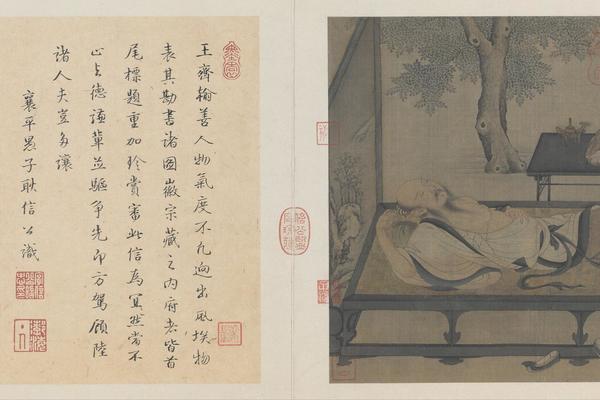 王齊翰善人物氣度不凡迥出風埃物
表其勘書諸圖徽宗藏之内府者皆首
尾標題重加珍賞審此信為冝然當不
止与德謙輩並驅爭先即方駕顧陸
諸人夫豈多讓
襄平愚子耿信公識